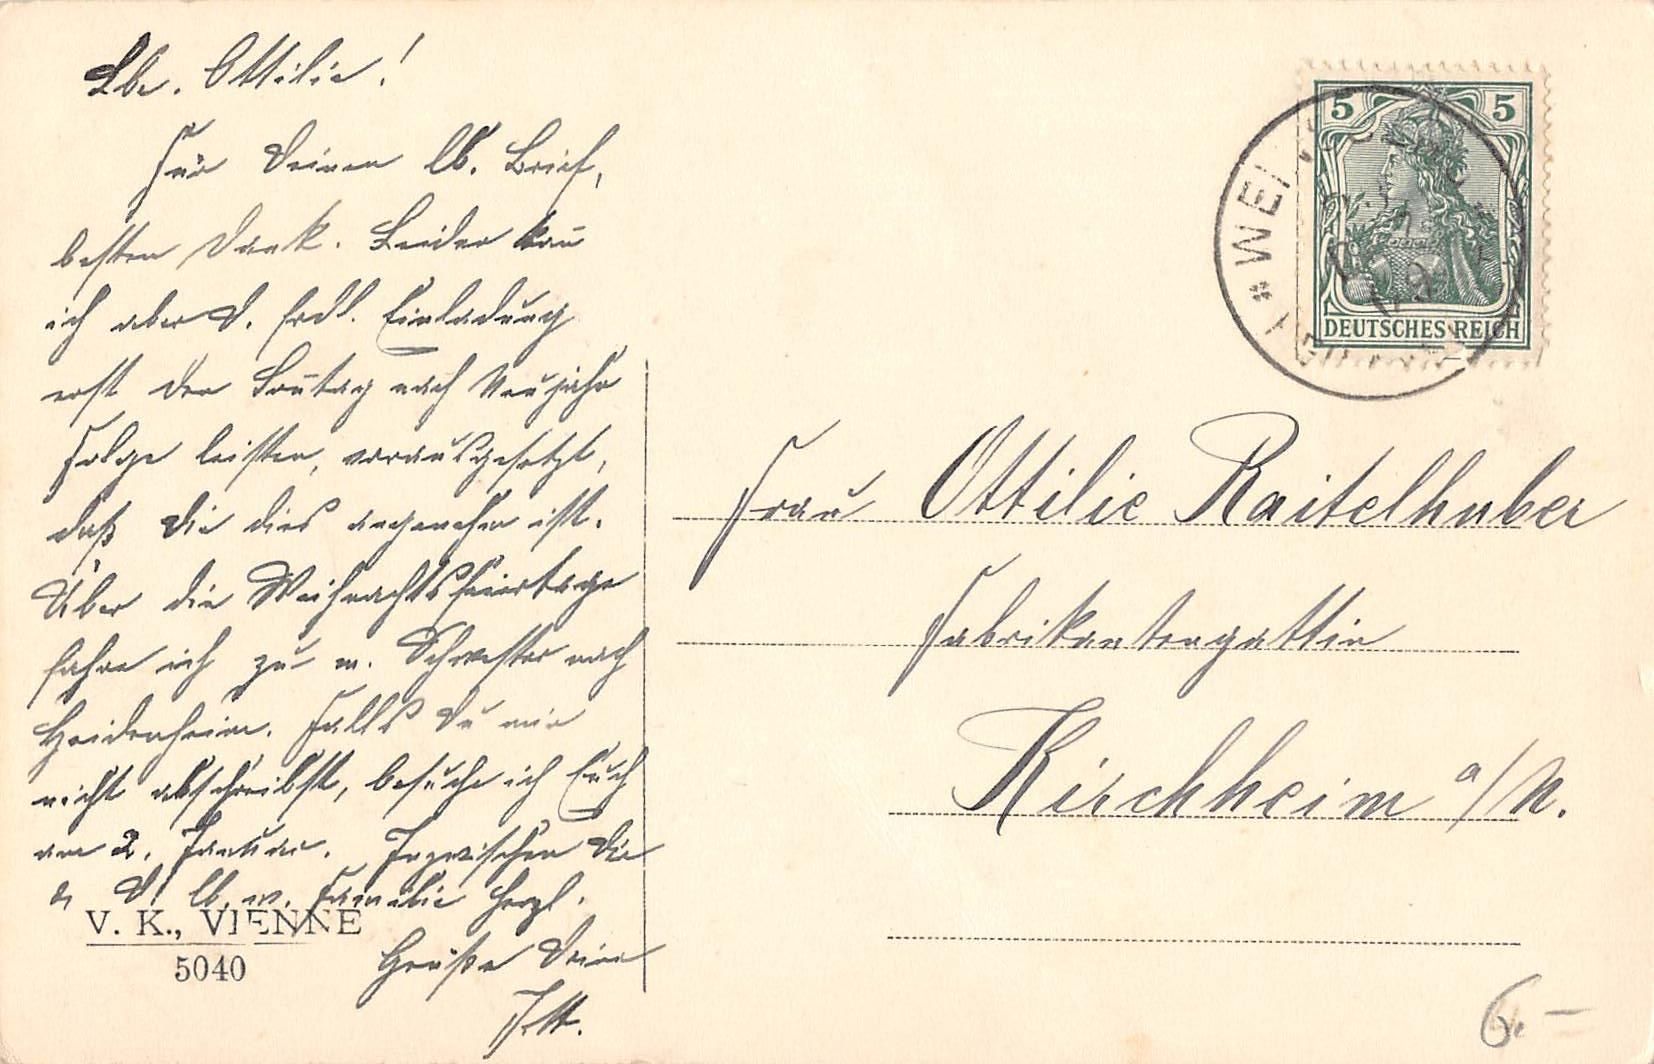 Lbe. Ottilie!
Für Deinen lb. Brief,
besten Dank. Leider kañ
ich aber d. frdl. Einladung
erst den Soñtag nach Neujahr
Folge leisten, vorausgesetzt,
daß Dir dies angenehm ist.
Über die Weihnachtsfeiertage
fahre ich zu m. Schwester nach
Heidenheim. Falls Du mir
nicht abschreibst, besuche ich Euch
am 2. Januar. Inzwischen Dir
& D. lb. w. Familie herzl.
Grüße Deine
V. K., VIENNE
5040
5 5
DEUTSCHES REICH
* WEI
Frau Ottilie Raitelhuber
Fabrikantengattin
Kirchheim a/N.
6.–